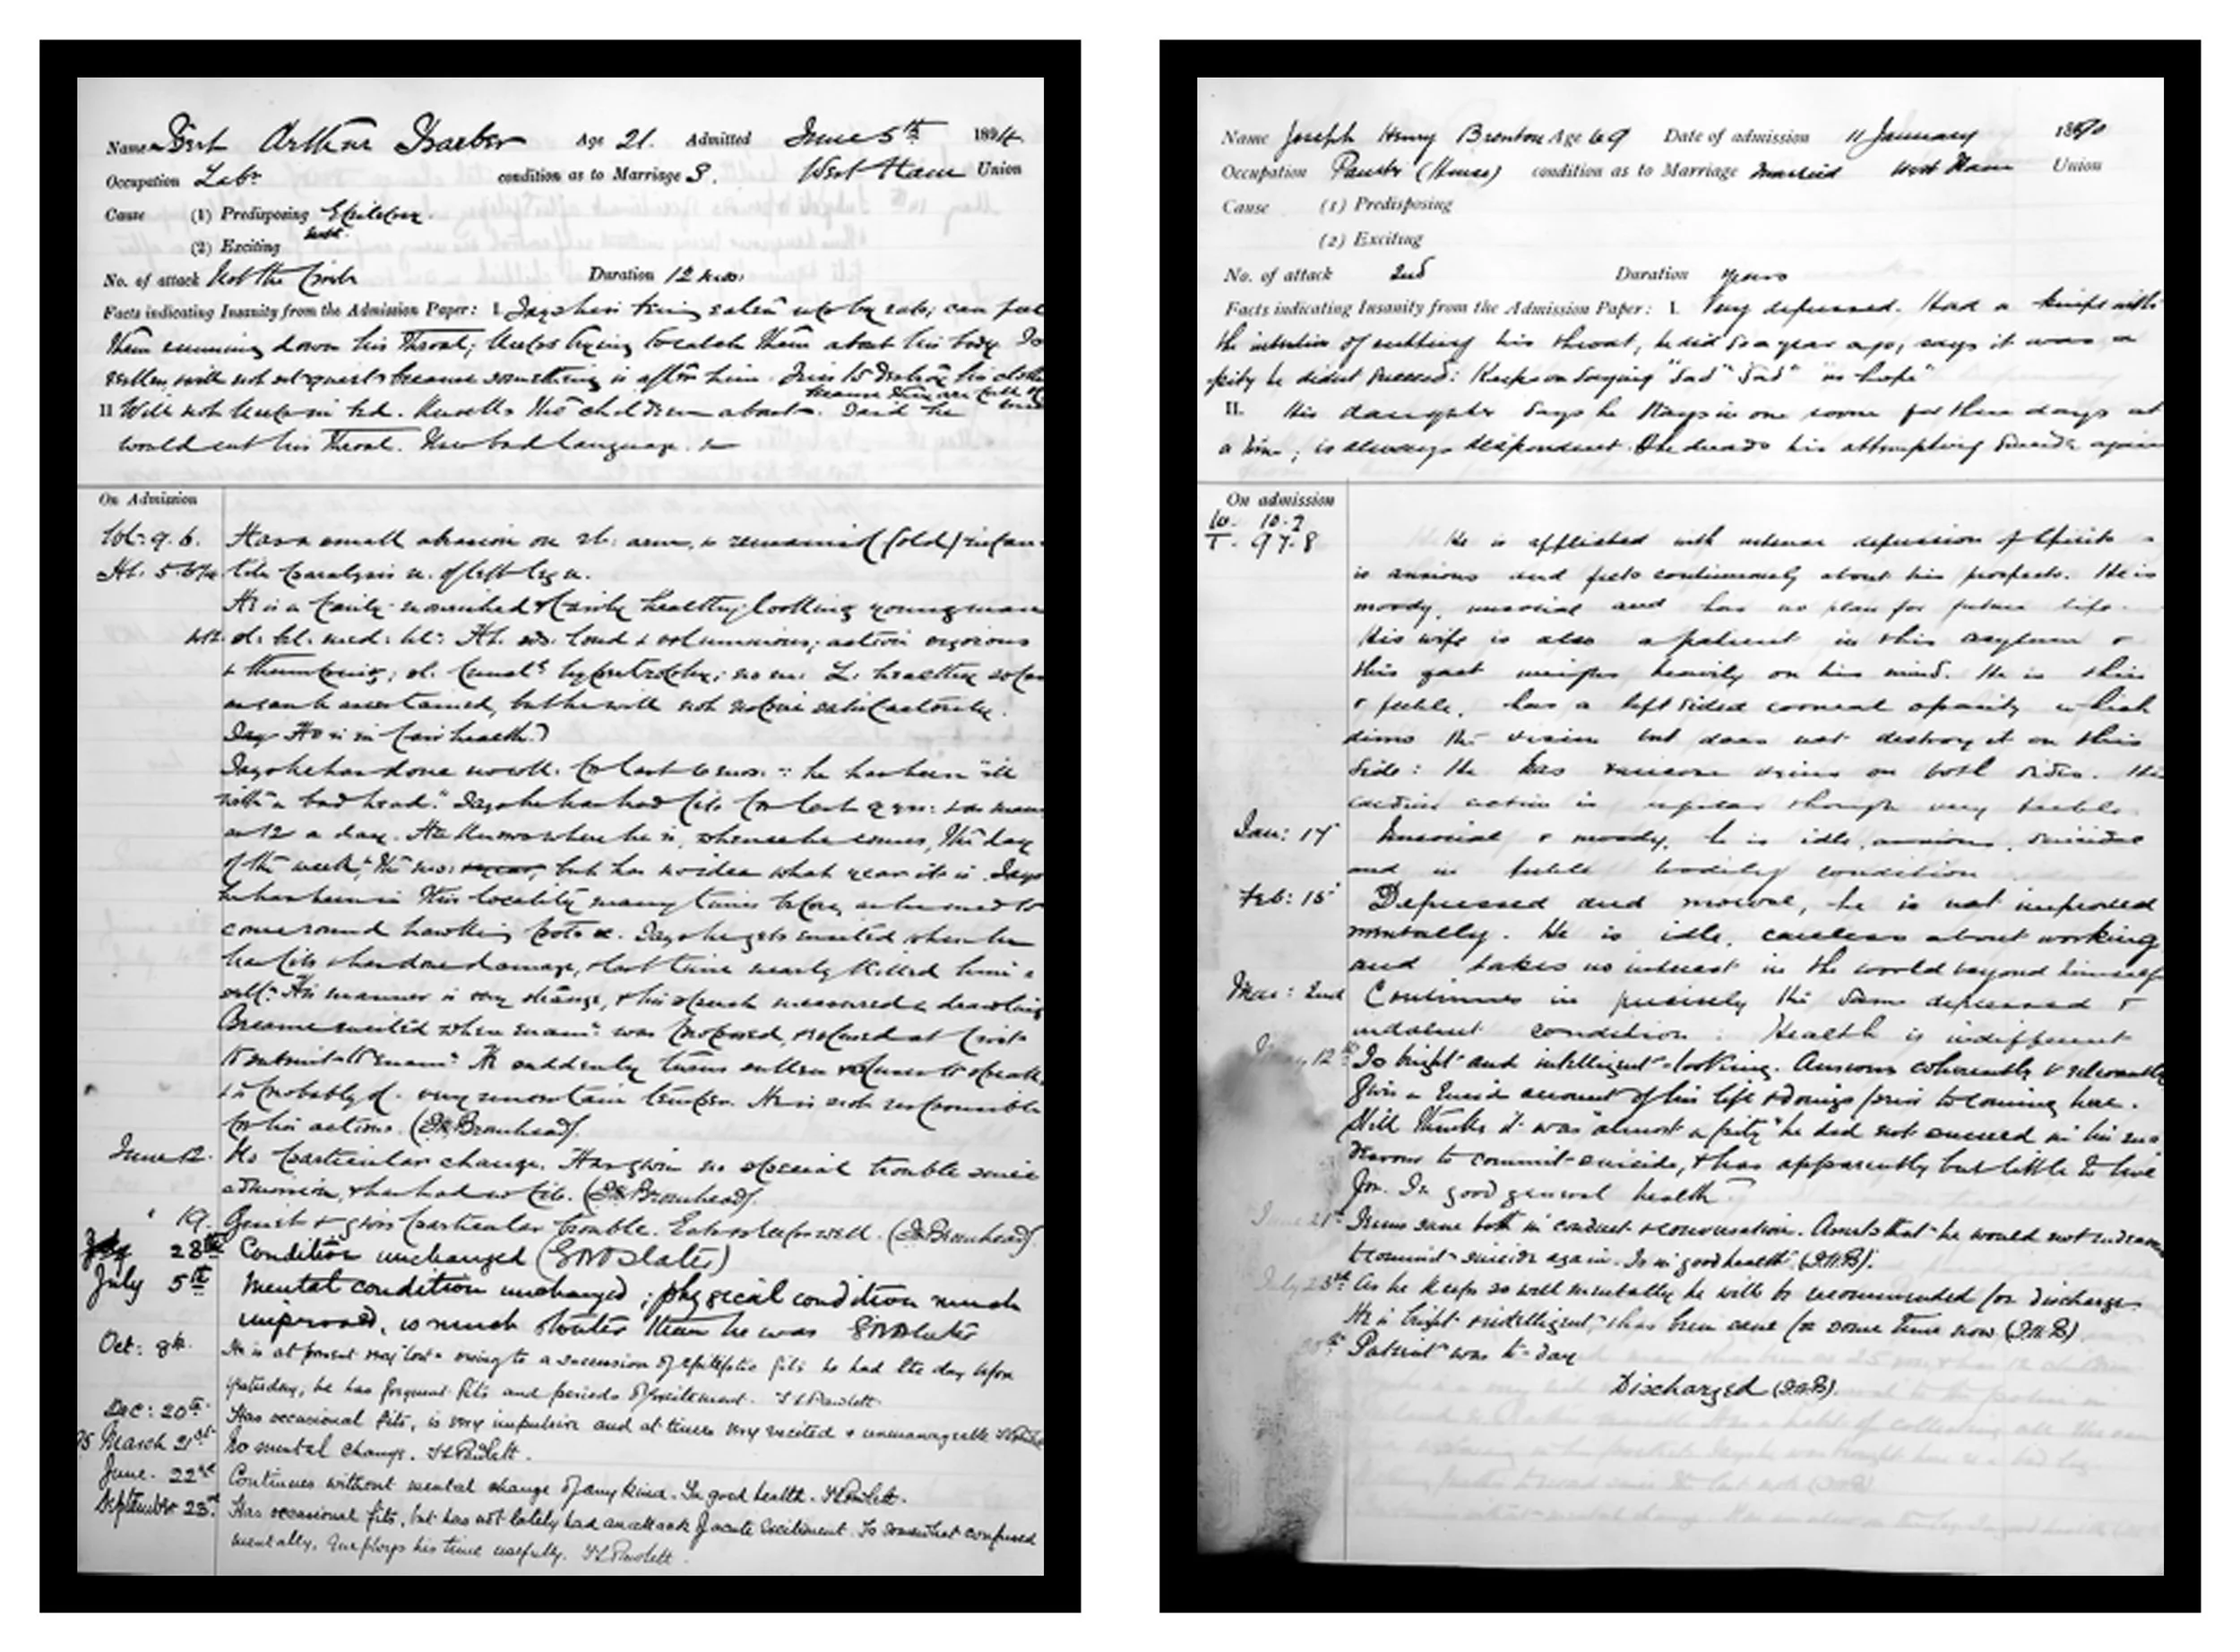 Name Bert Arthur Barber Age 21. Admitted June 5th 1894.
Occupation Labr condition as to Marriage S. West Ham Union
Cause (1) Predisposing Epilepsy.
(2) Exciting
No. of attack Not the first Duration 12 mos.
Facts indicating Insanity from the Admission Paper: I. Says he is being eaten up by rats; can feel
them running down his throat; keeps trying to catch them about his body. Is
sullen, will not because something is after him. Tries to destroy his clothes
because they are full of
II Will not keep in bed. Knocks the children about. Said he
would cut his throat. Uses bad language.
On Admission
Wt: 9. 6. Has a small abrasion on rt: arm, & remains (old) infan-
Ht. 5. tile paralysis of left leg
He is a fairly nourished & fairly healthy looking young man
Ht. sds. loud & voluminous; action vigorous
& thumping; hypertrophy; no L: healthy so far
as can be ascertained, but he will not satisfactorily.
Say He is in fair health.)
Says he has done no work for last 6 mos. he has been "ill
with a bad head." Says he has had fits for last yrs: as many
as 12 a day. He knows where he is, whence he comes, the day
of the week, the mo: but has no idea what year it is. Says
he has been in this locality many times before, as he used to
come round hawking pots &. Says he gets excited when he
has fits & has done damage, & last time nearly killed him-
self. His manner is very strange, & his speech measured & drawling
Became excited when examn: was proposed, refused at first
to submit to examn: He suddenly turns sullen refuses to speak,
& is probably of very uncertain temper. He is not responsible
for his actions. (Dr Bromhead).
June 12. No particular change. Has given no special trouble since
admission, & has had no fits. (Dr Bromhead).
" 19. Quiet & gives particular trouble. Eats & sleeps well. (Dr Bromhead)
28th Condition unchanged (Slater)
July 5th Mental condition unchanged; physical condition much
improved, is much stouter than he was Slater
Oct: 8th. He is at present very lost owing to a succession of epileptic fits he had the day before
yesterday, he has frequent fits and periods of excitement.
Dec: 20th. Has occasional fits, is very impulsive and at times very excited & unmanageable
95 March 21st No mental change.
June. 22nd Continues without mental change of any kind. In good health.
September 23rd Has occasional fits, but has not lately had an attack of acute excitement. Is somewhat confused
mentally. Employs his time usefully.
Name Joseph Henry Brenton Age 69 Date of admission 11 January 1890
Occupation Painter (House) condition as to Marriage Married West Ham Union
Cause (1) Predisposing
(2) Exciting
No. of attack 2nd Duration years
Facts indicating Insanity from the Admission Paper: I. Very depressed. Had a knife with
the intention of cutting his throat, he did so a year ago, says it was a
pity he didnt succeed: Keeps on saying "Sad" "Sad" "no hope"
II. His daughter says he stays in one room for three days at
a time; is always despondent. She dreads his attempting suicide again
On admission
W. 10-2
T. 97.8 He is afflicted with intense depression of spirits
is anxious and frets continuously about his prospects. He is
moody, unsocial and has no plan for future life.
His wife is also a patient in this asylum &
this fact weighs heavily on his mind. He is thin
& feeble, has a left sided corneal opacity which
dims the vision but does not destroy it on this
side: He has varicose veins on both sides. His
cardiac action is regular though very feeble.
Jan: 17 Unsocial & moody, he is idle, anxious, suicidal
and in feeble bodily condition
Feb: 15 Depressed and morose, he is not improved
mentally. He is idle, careless about working
and takes no interest in the world beyond himself
Mar: 2nd Continues in precisely the same depressed &
indolent condition: Health is indifferent
May 12th Is bright and intelligent-looking. Answers coherently & relevantly
Gives a lucid account of his life & doings prior to coming here.
Still thinks it was "almost a pity" he did not succeed in his en-
deavour to commit suicide, & has apparently but little to live
for. In good general health
June 21st Seems sane both in conduct & conversation. Asserts that he would not endeavour
to commit suicide again. Is in good health (J.H.B).
July 23rd As he keeps so well mentally he will be recommended for discharge
He is bright & intelligent, & has been sane for some time now (J.H.B)
Patient was to-day
Discharged (J.H.B).